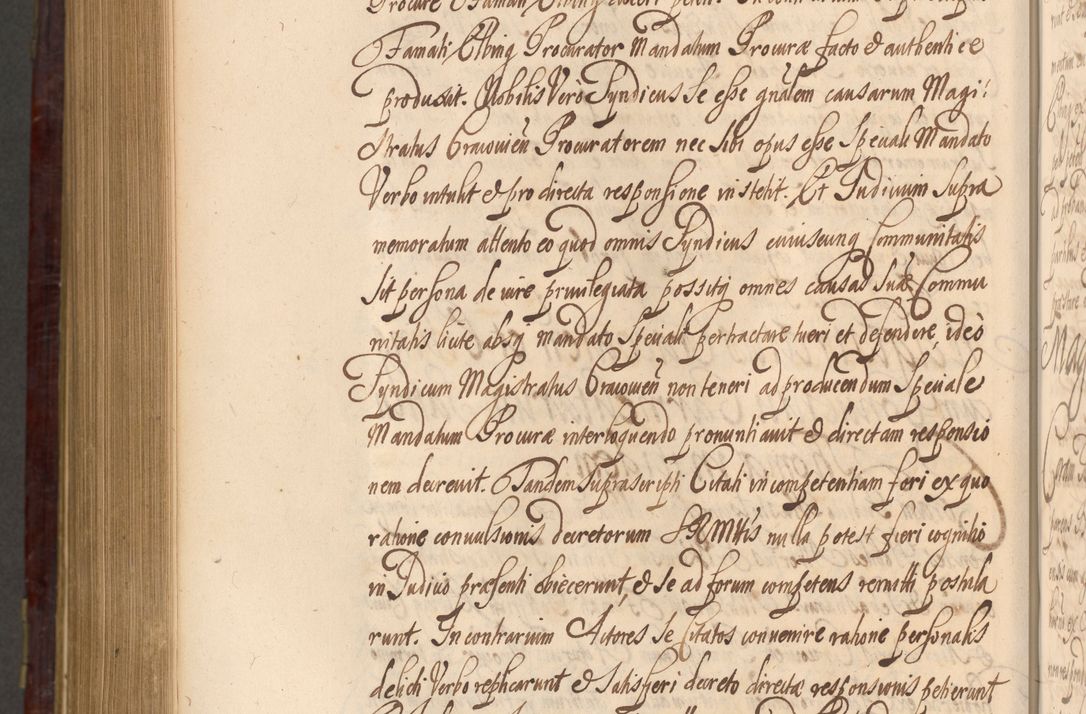 Famati Elbing Procurator Mandatum Procuræ facto & authentice
produxit. Nobilis Verò Syndicus Se esse gnãlem causarum Magi:
stratus Cracovieñ Procuratorem nec sibi opus esse Speciali Mandato
Verbo intulit & pro directa responsione institit. Et Judicium Supra
memoratum attento eo quod omnis Syndicus cuiuscunq Communitatis
sit persona de iure privilegiata possitq omnes causas Suæ Commu
nitatis licite absq mandato Speciali pertractare tueri et defendere, ideò
Syndicum Magistratus Cracovieñ non teneri ad producendum Speciale
Mandatum Procuræ interloquendo pronuntiavit & directam responsio
nem decrevit. Tandem Suprascripti Citati incompetentiam fori ex quo
ratione convulsionis decretorum SRMttis nulla potest fieri cognitio
in Judicio præsenti obiecerunt, & se ad forum competens remitti postula
runt. In contrarium Actores Se Citatos convenire ratione personalis
delicti Verbo replicarunt & Satisfieri decreto directæ responsionis petierunt